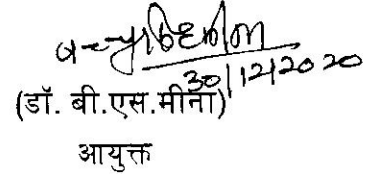 30/12/2020
(डॉ. बी.एस.मीना)
आयुक्त